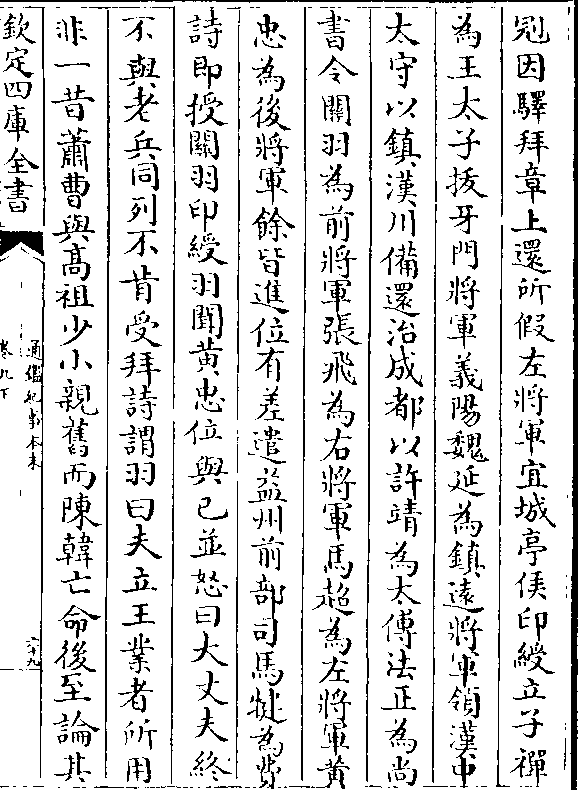 冠因驛拜章上還所假左將軍宜城亭侯印綬立子禪
為王太子拔牙門將軍義陽魏延為鎮遠將軍領漢中
太守以鎮漢川備還治成都以許靖為太傅法正為尚
書令關羽為前將軍張飛為右將軍馬超為左將軍黃
忠為後將軍餘皆進位有差遣益州前部司馬犍為費
詩即授關羽印綬羽聞黃忠位與已並怒曰大丈夫終
不與老兵同列不肯受拜詩謂羽曰夫立王業者所用
非一昔蕭曹與高祖少小親舊而陳韓亡命後至論其
欽定四庫全書
通鑑紀事本末
卷九下
二十九